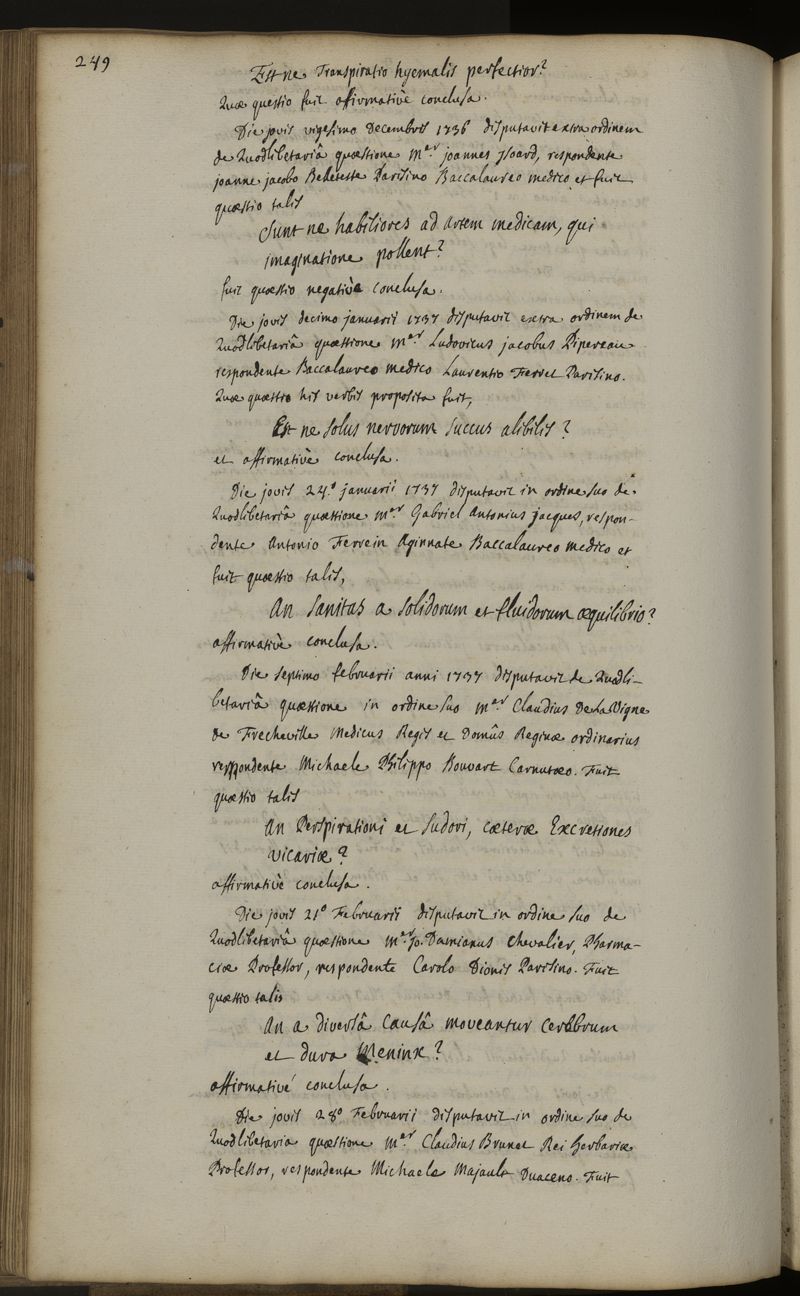 249
Est ne Transpiratio hyemalis perfectior?
Quæ questio fuit affirmativè conclusa.
Die jovis vigesimo Decembris 1736 disputavit extra ordinem
de Quodlibetariâ quæstione M.er joannes , respondente
joanne jacobo Belleteste Parisino Baccalaureo medico et fuit
quæstio talis
Sunt ne habiliores ad artem medicam, qui
imaginatione pollent?
fuit quæstio negativè conclusa.
Die jovis decimo januarii 1737 disputavit extra ordinem de
Quodlibetariâ quæstione M.er Ludovicus jacobus Pipereau
respondente Baccalaureo medico Laurentio Ferret Parisino.
Quæ quæstio his verbis proposita fuit,
Est ne solus nervorum succus alibilis?
et affirmativè conclusa.
Die jovis 24.o januarii 1737 disputavit in ordine suo de
Quodlibetariâ quæstione M.er Gabriel Antonius jacques, respon-
dente Antonio Ferrein Aginnate Baccalaureo medico et
fuit quæstio talis,
An sanitas a solidorum et fluidorum æquilibrio?
affirmativè conclusa.
Die septimo februarii anni 1737 disputavit de Quodli-
betariâ quæstione in ordine suo M.er Claudius De La Vigne
de Frecheville Medicus Regis et Domûs Reginæ ordinarius
respondente Michaele Philippo Bouvart Carnutæo. Fuit
quæstio talis
An Perspirationi et sudori, cæteræ Excretiones
vicariæ?
affirmativè conclusa.
Die jovis 21o Februarii disputavit in ordine suo de
Quodlibetariâ quæstione M.er jo. Damianus Chevalier, Pharma-
ciæ Professor, respondente Carolo Dionis Parisino. Fuit
quæstio talis
An a diversâ causâ moveantur cerebrum
et dura Meninx?
affirmativé conclusa.
Die jovis 28o Februarii disputavit in ordine suo de
Quodlibetaria quæstione M.er Claudius Brunet Rei herbariæ
Professor, respondente Michaele Majault Duaceno. Fuit